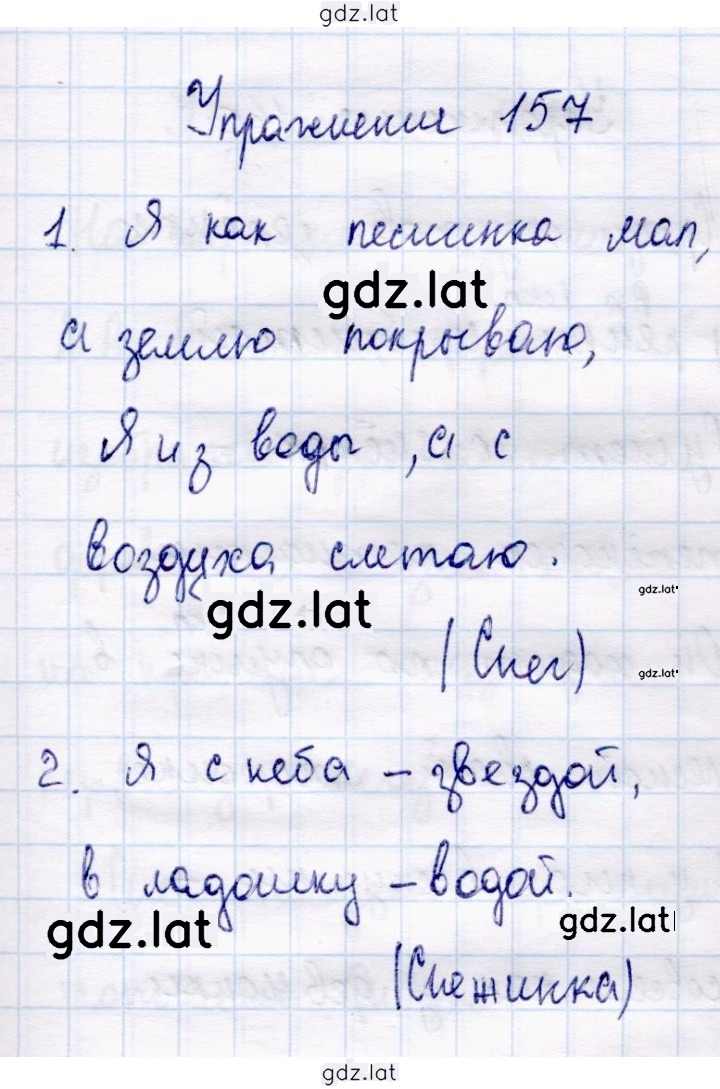 gdz.lat
Упражнение 157
1. Я как песчинка мал,
gdz.lat
а землю покрываю,
Я из воды, а с
воздуха слетаю.
gdz.lat
gdz.lat
(Снег)
gdz.lat
2. Я с неба – звездой,
в ладошку – водой.
gdz.lat
gdz.lat
(Снежинка)
gdz.lat